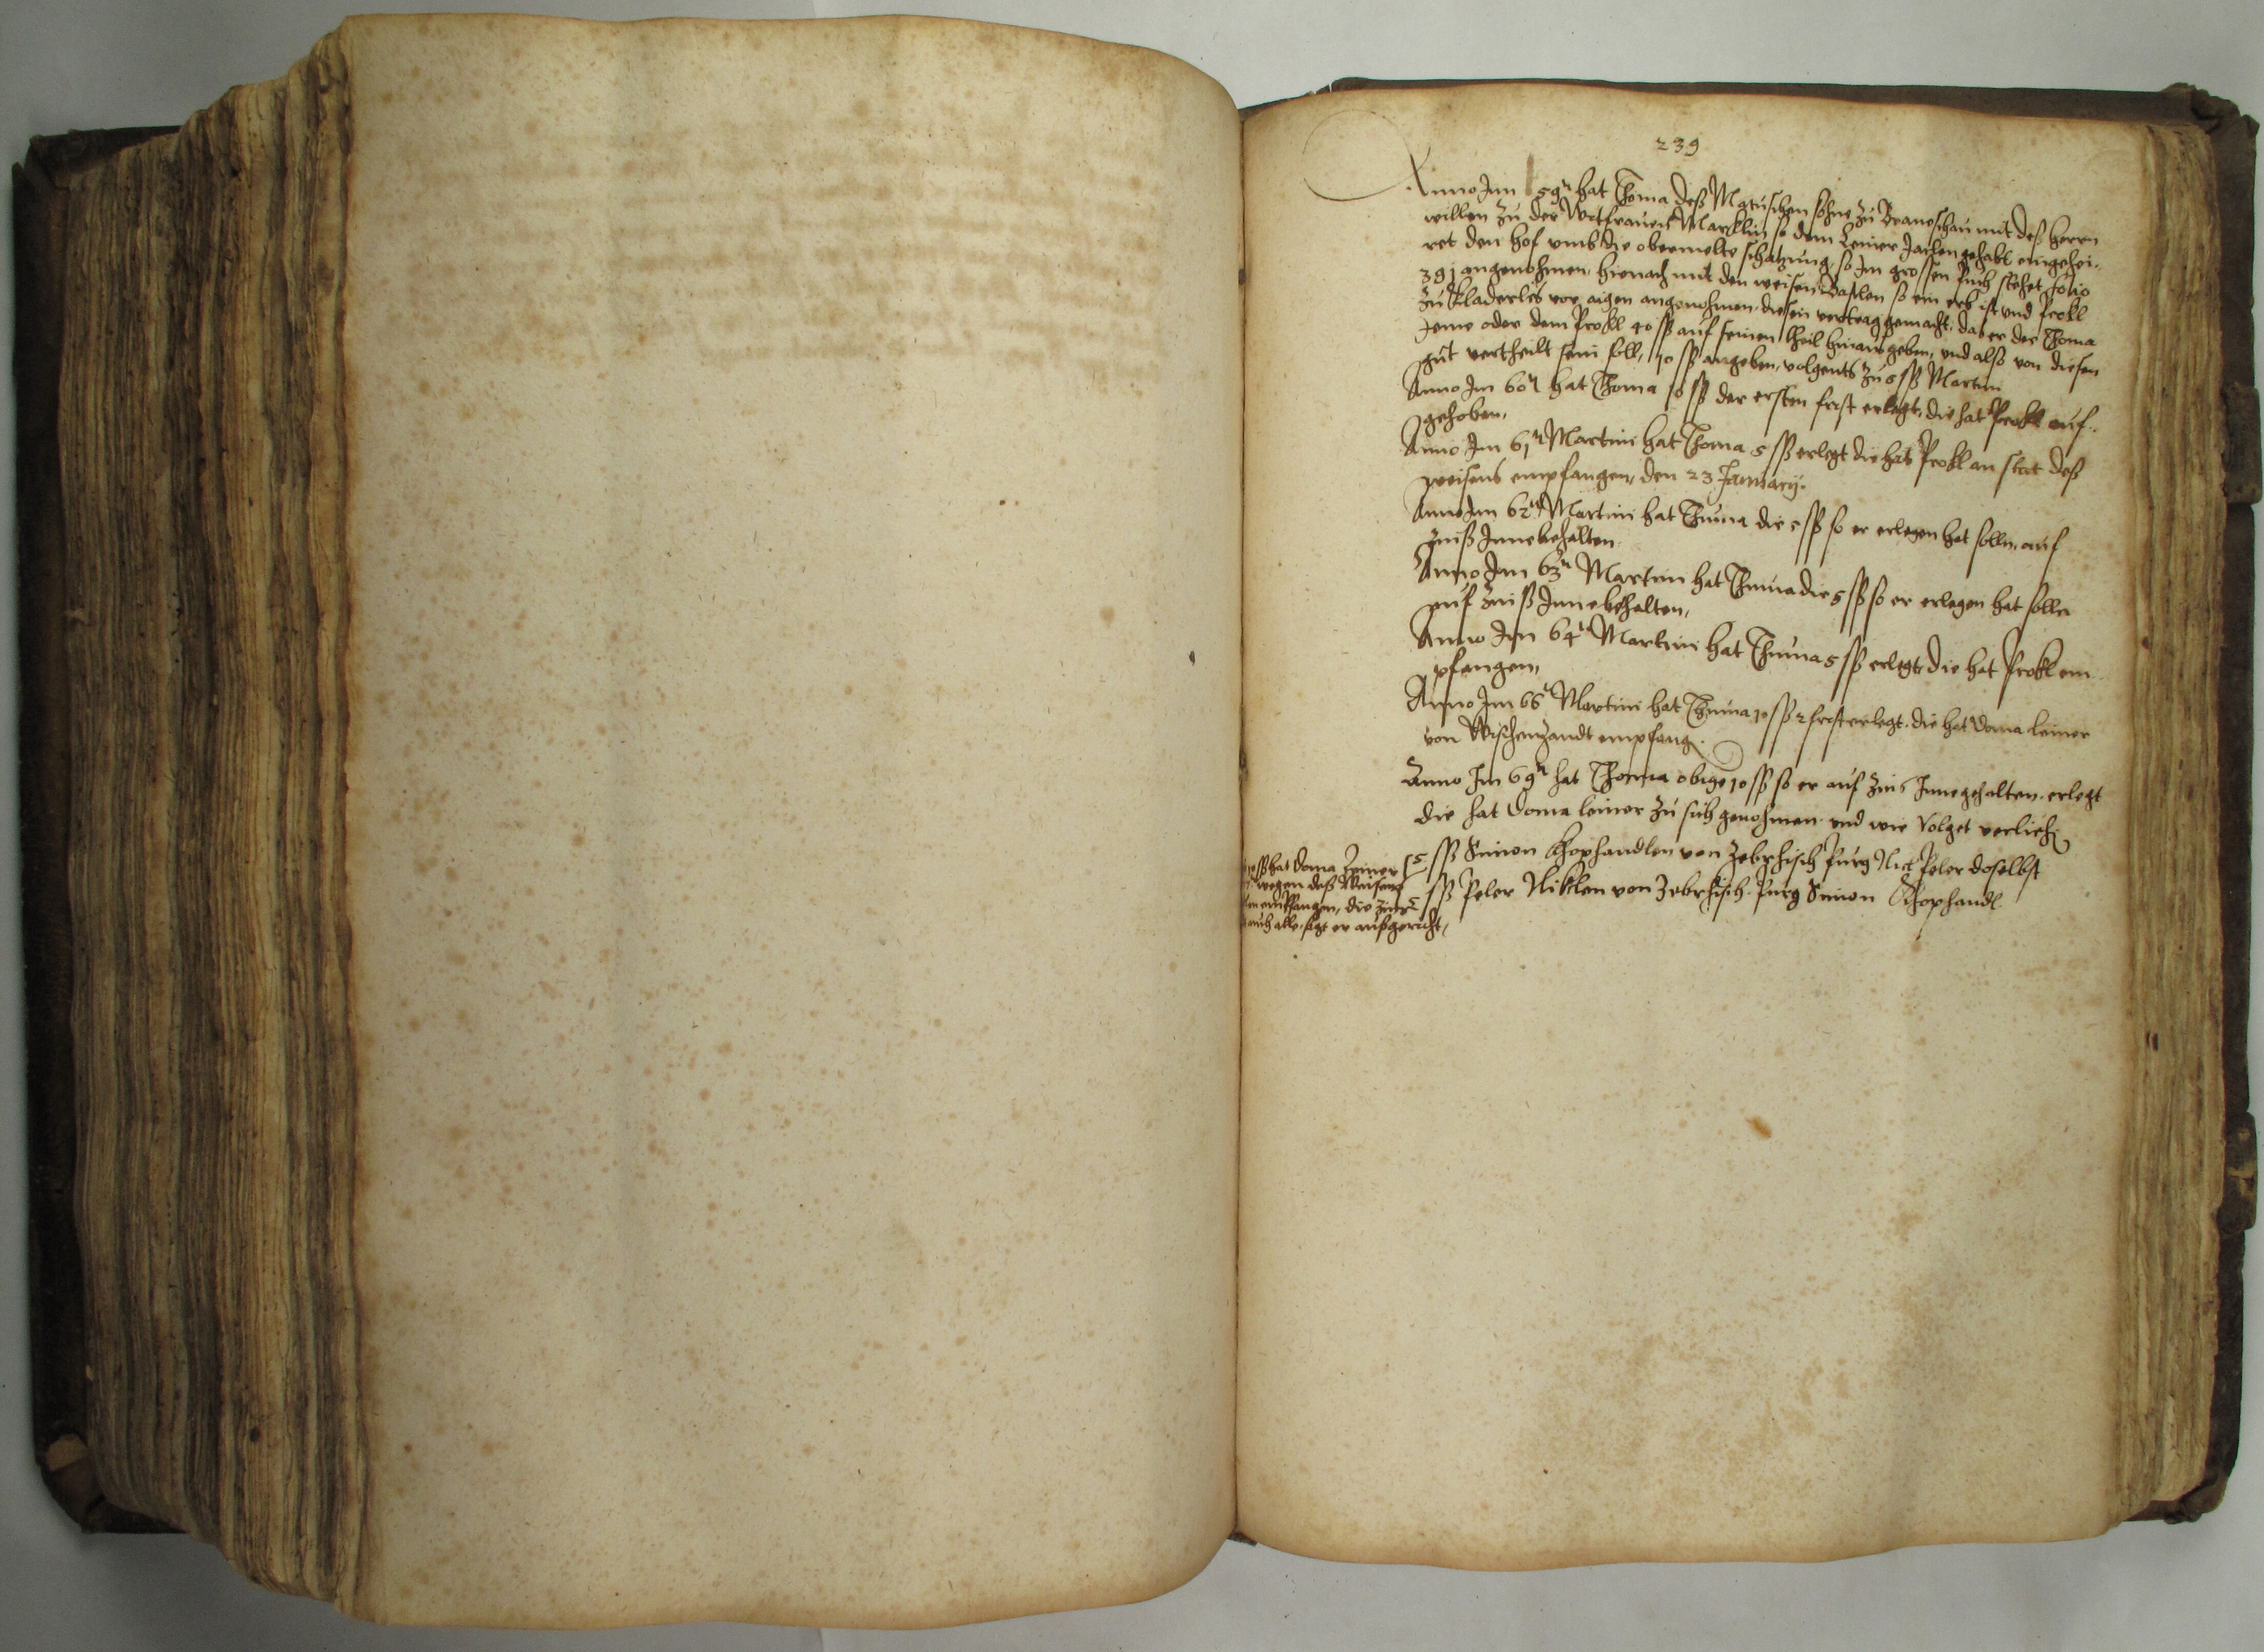 239
Anno Im 59ᵗⁿ hat Thoma deß Matuschen sohne zu Braneschau mit deß herrn
willen zu der Witfrauen Marcklin so dem Leiner Jaclen gehabt eingehei-
ret den hof vmb die obermelte schatzung, so Im grossen puch stehet folio
391 angenohmen, hienach mit den weisen Baßlen so ein erb ist vnd Prokl
zu Kladerles vor aigen angenohmen, diesen vertrag gemacht, das er der Thoma
Jeme oder dem Prokl 40 ß auf seinen theil hinausgeben, vnd also von diesen
gut vertheilt sein soll, 10 ß angeben, volgents zu 5 ß Martini
Anno Im 60ᵗⁿ hat Thoma 10 ß der ersten frist erlegt, die hat Prokl auf-
gehoben,
Anno Im 61ᵗⁿ Martini hat Thoma 5 ß erlegt die hat Prokl an stat deß
weisens empfangen, den 23 January.
Anno Im 62ᵗⁿ Martini hat Thuma die 5 ß so er erlegen hat solln, auf
Zniß Innebehalten
Anno Im 63ᵗⁿ Martini hat Thuma die 5 ß so er erlegen hat sollen
auf Zniß Innebehalten,
Anno Im 64ᵗⁿ Martini hat Thuma 5 ß erlegt, die hat Prokl em-
pfangen,
Anno Im 66ᵗ Martini hat Thuma 10 ß 2 frist erlegt. die hat Doma leiner
von empfang.
Anno Im 69ᵗⁿ hat Thoma obige 10 ß so er auf Zins Innegehalten. erlegt
die hat Doma leiner zu sich genohmen vnd wie Volget verliehen
5 ß Simon Khophandlen von Zebrhisch purg Nicl Peter doselbst
5 ß Peter Niklen von Zebrhisch. purg Simon Khophandl
10 ß hat Doma Leiner
wegen deß Weisens
empfangen, die Zins
auch alle, sagt er außgericht,